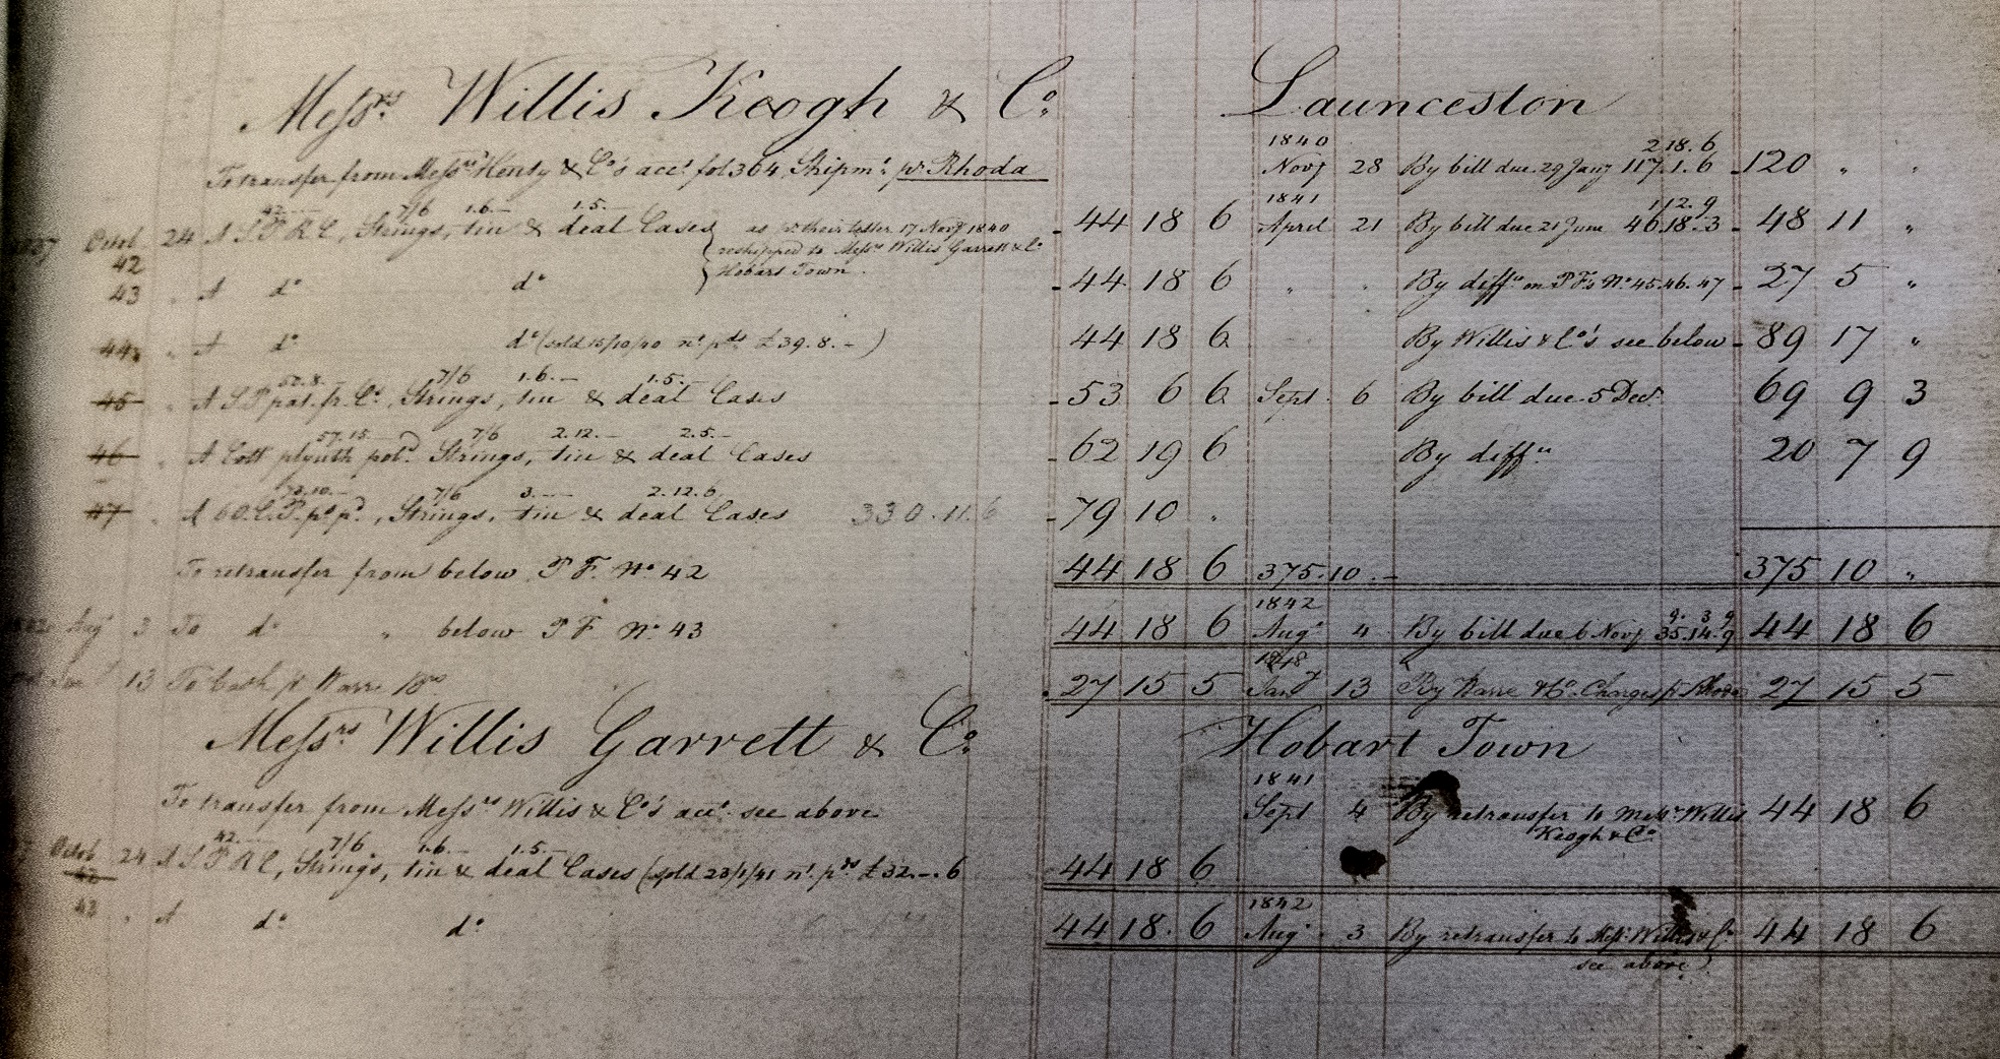 Messrs. Willis Keogh & Co. Launceston
To transfer from Messrs Henty & Co's acct. fol 364 Shipmt. pr. Rhoda
1840 2.18.6
Novr 28 By bill due 29 Jany 117.1.6 120 " "
42.— 7/6 1.6.— 1.5.—
Octob 24 A S.P R C, Strings, tin & deal Cases as pr their letter 17 Novr 1840 44 18 6
1841 1.12.9
April 21 By bill due 21 June 46.18.3 48 11 "
42 reshipped to Messrs Willis Garrett & Co
Hobart Town.
43 " A do do 44 18 6 " " By diffce on P Fs No 45.46.47 27 5 "
44 " A do do (sold 15/10/40 nt. pds £39.8.—) 44 18 6 By Willis & Co's see below 89 17 "
50.8.— 7/6 1.6.— 1.5.—
45 " A S P pat. fr. C., Strings, tin & deal Cases 53 6 6 Sept. 6 By bill due 5 Decr. 69 9 3
57.15.— 7/6 2.12.— 2.5.—
46 " A Cott Strings, tin & deal Cases 62 19 6 By diffce 20 7 9
73.10.— 7/6 3.— 2.12.6
47 " A 6 O.C.P. , Strings, tin & deal Cases 330.11.6 79 10 "
To retransfer from below P F. No 42 44 18 6 375.10.— 375 10 "
1842 9.3.9
Augt 3 To do " below P F No 43 44 18 6 Augt 4 By bill due 6 Novr 35.14.9 44 18 6
1848
13 To Cash pr Warre 27 15 5 Jany 13 By Warre & Co. Charges pr Rhoda 27 15 5
Messrs Willis Garrett & Co. Hobart Town
1841
To transfer from Messrs Willis & Co's acct. see above Sept 4 By retransfer to Messrs Willis 44 18 6
Keogh & Co.
42.— 7/6 1.6.— 1.5.—
Octob 24 A S P R C, Strings, tin & deal Cases (sold 23/1/41 nt. pds £32.—.6 44 18 6
42
1842
43 " A do do 44 18. 6 Augt 3 By retransfer to Messrs Willis & Co 44 18 6
see above)